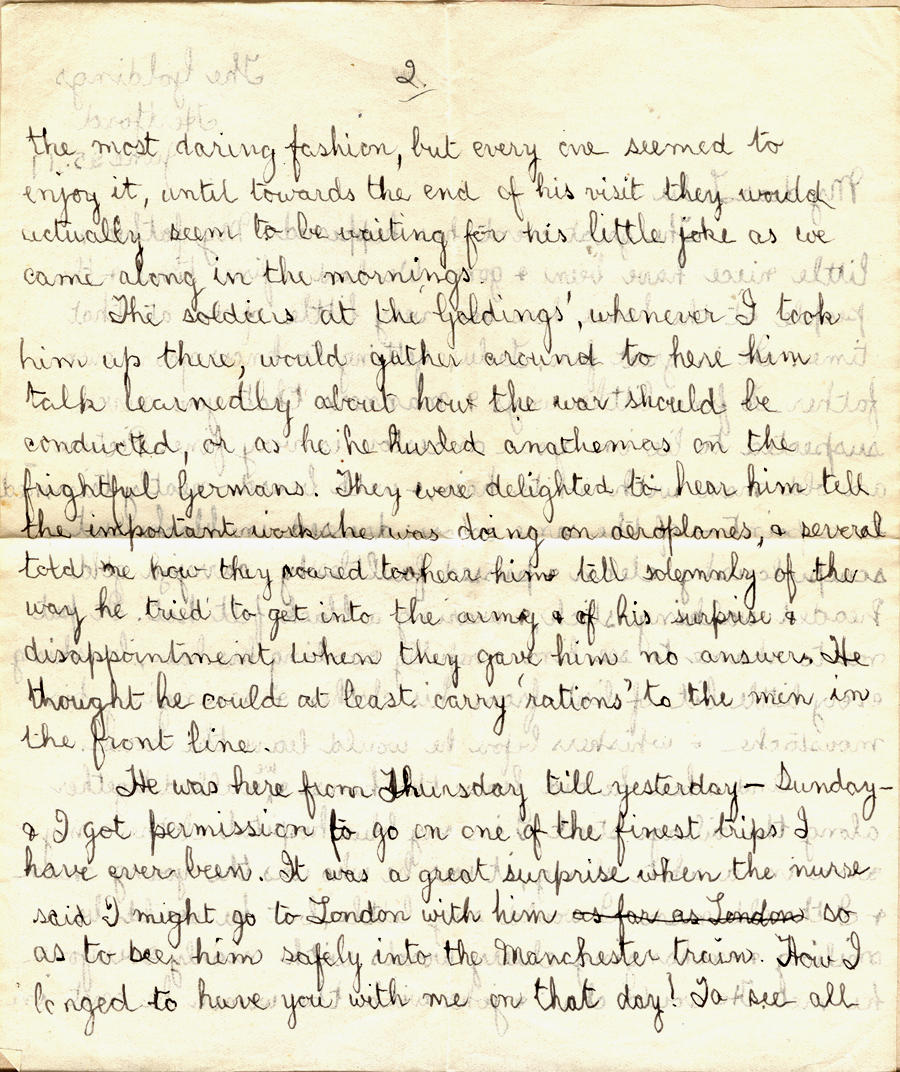 2.
the most daring fashion, but every one seemed to
enjoy it, until towards the end of his visit they would
actually seem to be waiting for his little joke as we
came along in the mornings.
The soldiers at the 'Goldings', whenever I took
him up there, would gather around to here him
talk 'learnedly' about how the war should be
conducted, or as he he hurled anathemas on the
frightful Germans. They were delighted to hear him tell
the important work he was doing on aeroplanes, & several
told me how they roared to hear him tell solemnly of the
way he tried to get into the army & of his surprise &
disappointment when they gave him no answer. He
thought he could at least carry 'rations' to the men in
the front line.
He was here from Thursday till yesterday – Sunday –
& I got permission to go on one of the finest trips I
have ever been. It was a great surprise when the nurse
said I might go to London with him as far as London so
as to see him safely into the Manchester train. How I
longed to have you with me on that day! To see all